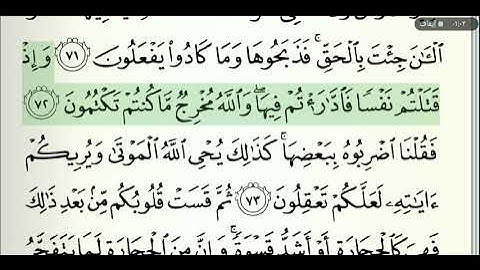 ٠١:٠٢ إيقاف
ٱلۡـَٰٔنَ جِئۡتَ بِٱلۡحَقِّۚ فَذَبَحُوهَا وَمَا كَادُواْ يَفۡعَلُونَ ٧١ وَإِذۡ
قَتَلۡتُمۡ نَفۡسٗا فَٱدَّٰرَٰٔتُمۡ فِيهَاۖ وَٱللَّهُ مُخۡرِجٞ مَّا كُنتُمۡ تَكۡتُمُونَ ٧٢
فَقُلۡنَا ٱضۡرِبُوهُ بِبَعۡضِهَاۚ كَذَٰلِكَ يُحۡيِ ٱللَّهُ ٱلۡمَوۡتَىٰ وَيُرِيكُمۡ
ءَايَٰتِهِۦ لَعَلَّكُمۡ تَعۡقِلُونَ ٧٣ ثُمَّ قَسَتۡ قُلُوبُكُم مِّنۢ بَعۡدِ ذَٰلِكَ
فَهِيَ كَٱلۡحِجَارَةِ أَوۡ أَشَدُّ قَسۡوَةٗۚ وَإِنَّ مِنَ ٱلۡحِجَارَةِ لَمَا يَتَفَجَّرُ